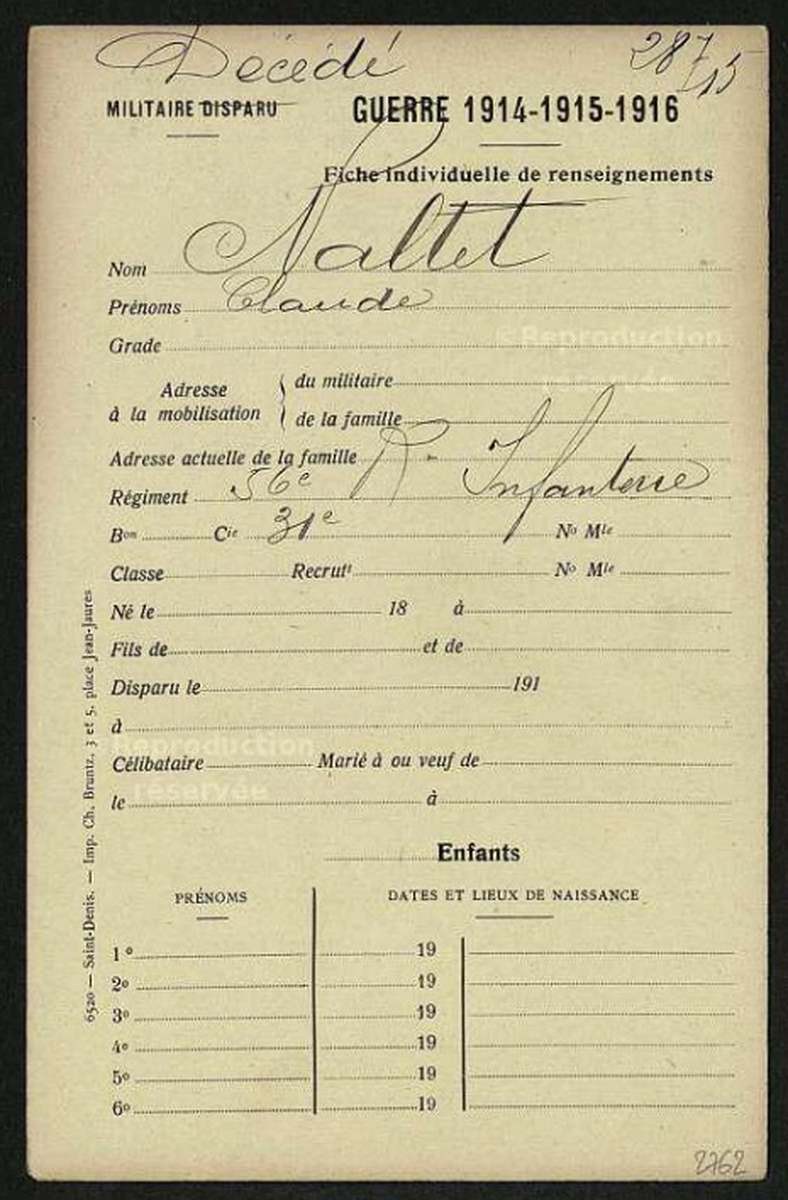 Décédé
MILITAIRE DISPARU
GUERRE 1914-1915-1916
Fiche individuelle de renseignements
Nom Naltet
Prénoms Claude
Grade
Adresse à la mobilisation
du militaire
de la famille
Adresse actuelle de la famille
Régiment 56e R. Infanterie
Bon Cie 31e No Mle
Classe Recrutt No Mle
Né le 18 à
Fils de et de
Disparu le 191
à
Célibataire Marié à ou veuf de
le à
Enfants
PRÉNOMS DATES ET LIEUX DE NAISSANCE
1º 19
2º 19
3º 19
4º 19
5º 19
6º 19
6520 — Saint-Denis. — Imp. Ch. Bruntz, 3 et 5, place Jean-Jaurès
Reproduction
Reproduction
réservée
2762